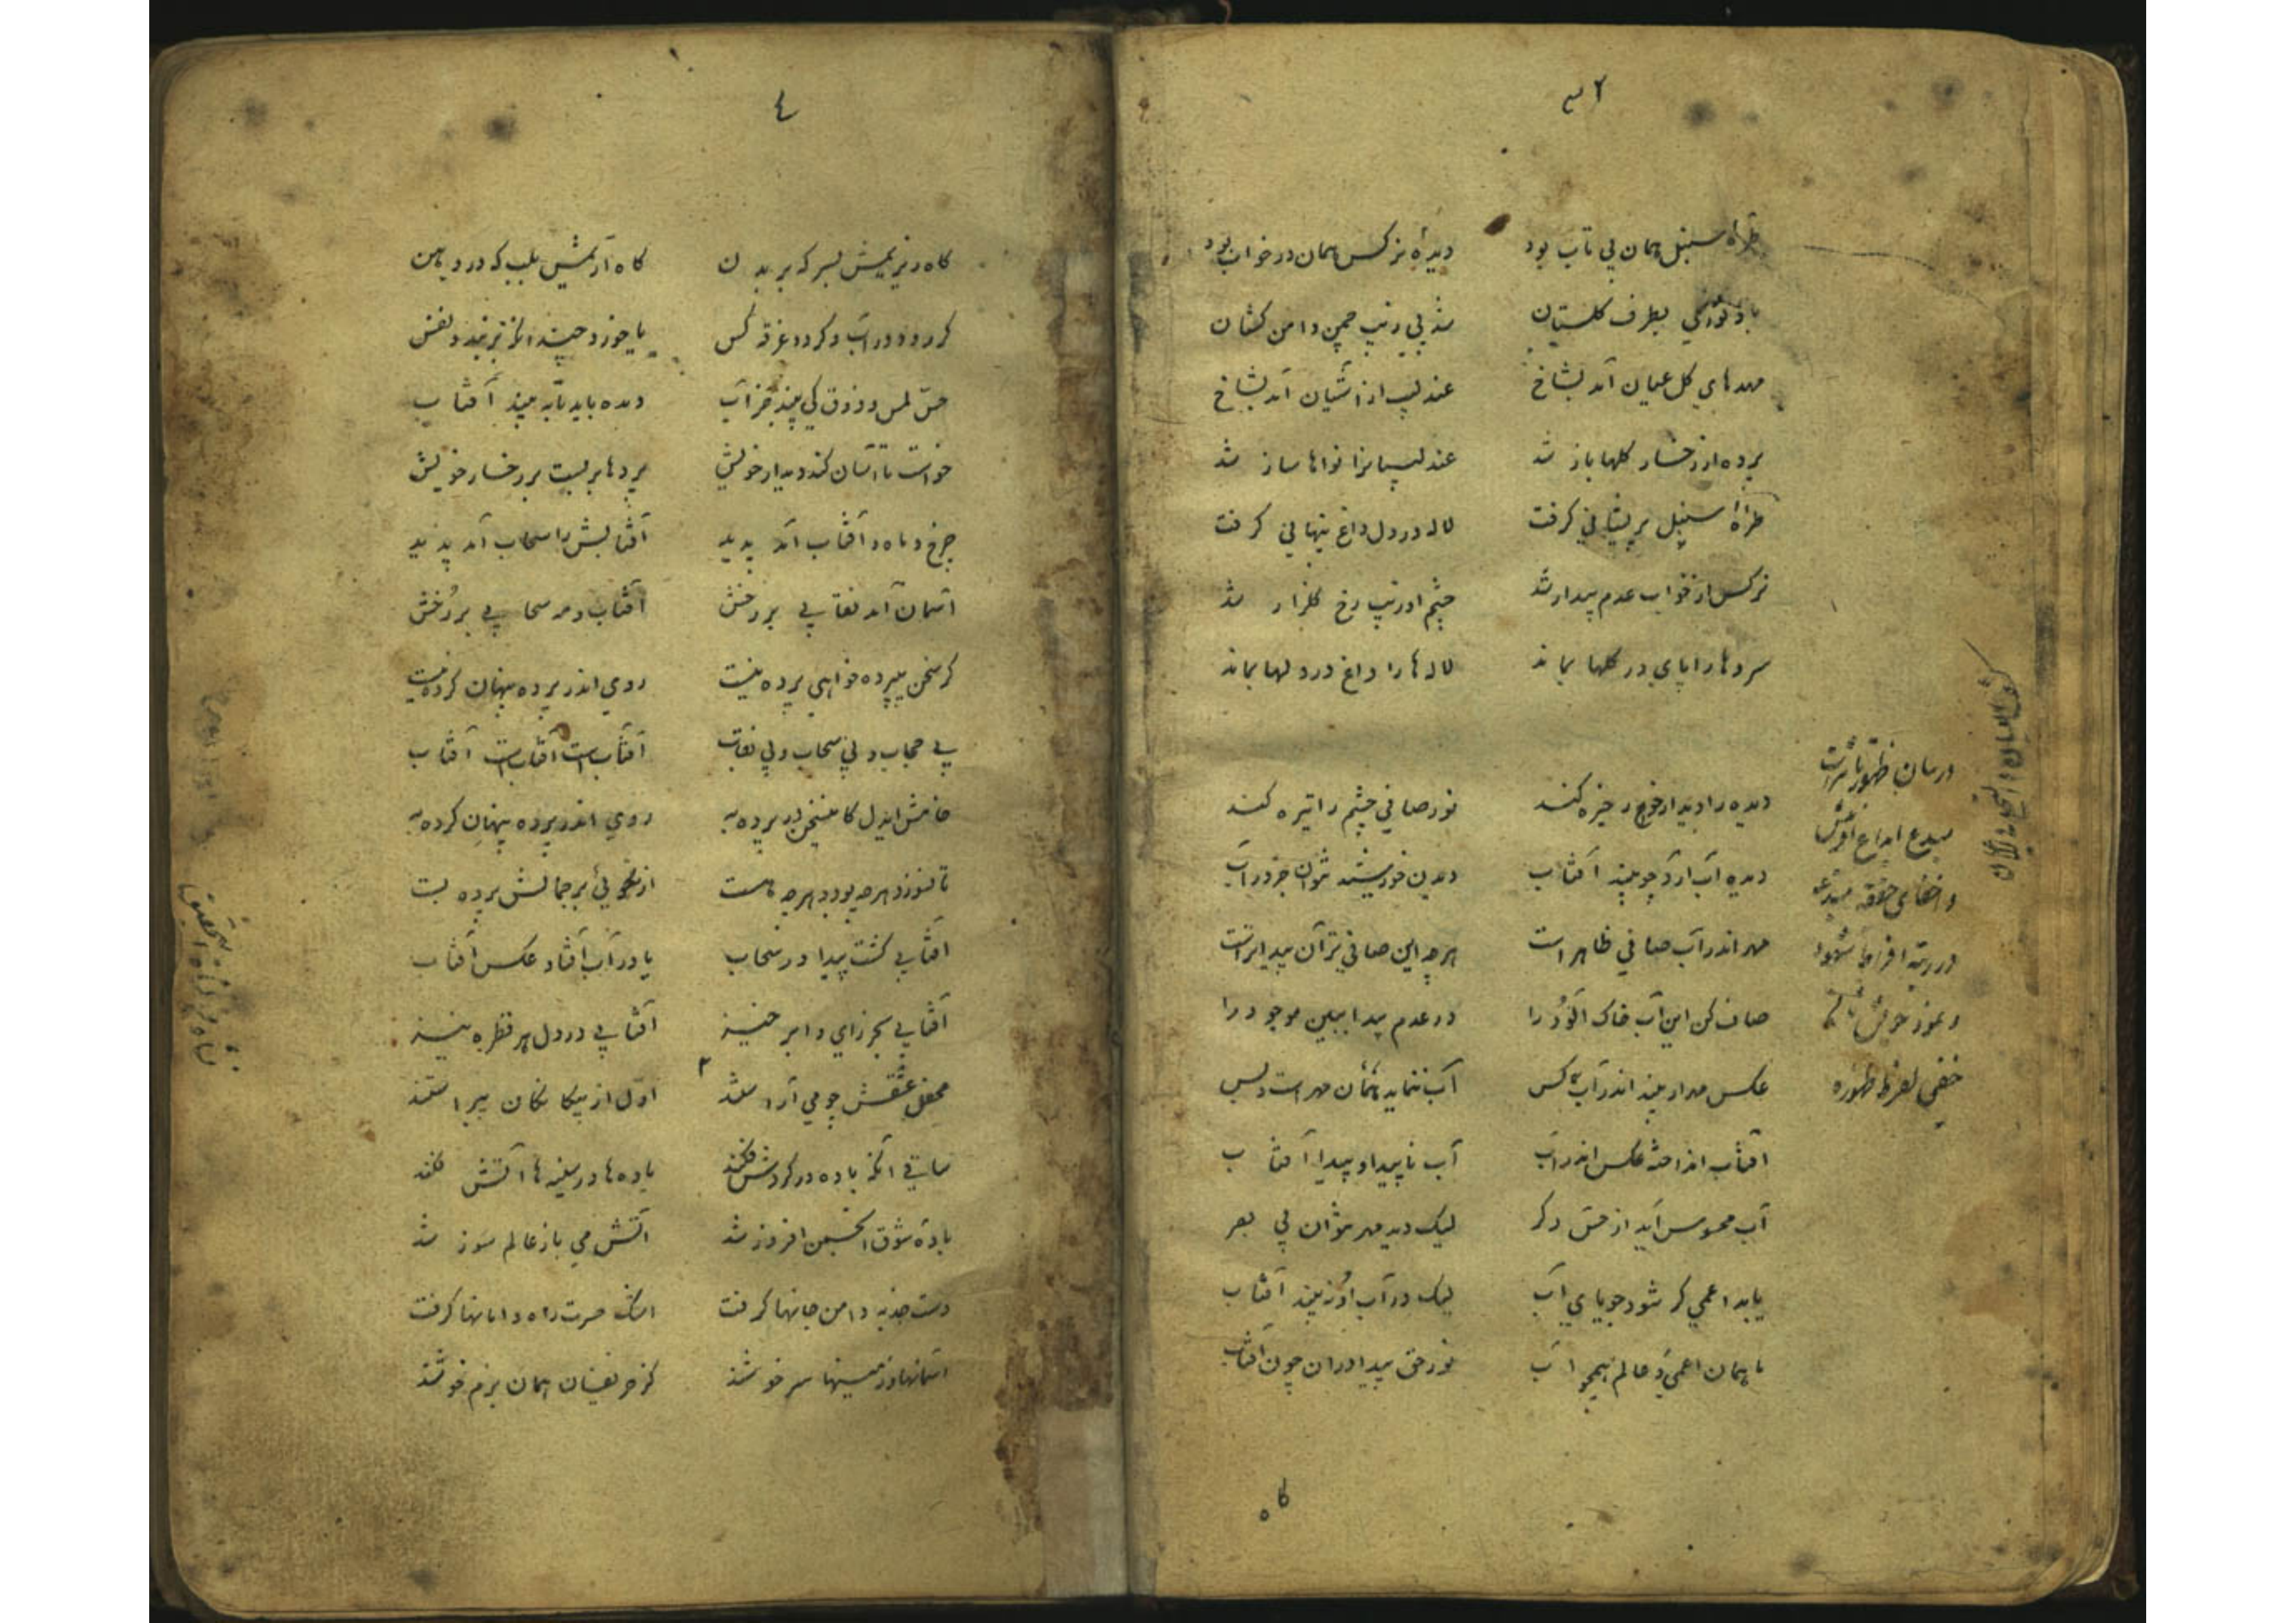 طرهٔ سنبل همان بی تاب بود دیدهٔ نرکس همان در خواب بود
باد نوروزی بطرف کلستان شد پی زیب چمن دامن کشان
مهدهای کل عیان آمد بشاخ عندلیب از آشیان آمد بشاخ
پرده از رخسار کلها باز شد عندلیبانرا نواها ساز شد
طرهٔ سنبل پریشانی کرفت لاله در دل داغ پنهانی کرفت
نرکس از خواب عدم بیدار شد چشم او زیب رخ کلزار شد
سروها را پای در کلها بماند لاله‌ها را داغ در دلها بماند
در بیان ظهور
مبدع ابداع
خفی لفرط ظهوره
دیده را دیدار خور خیره کند نور صافی چشم را تیره کند
دیده آب آرد چو بیند آفتاب دیدن خورشید نتوان جز در آب
مهر اندر آب صافی ظاهر است هرچه این صافی‌تر آن پیداتر است
صاف کن این آب خاک آلود را در عدم پیدا ببین موجود را
عکس مه ار بیند اندر آب کس آب ننماید همان مهر است و بس
آفتاب انداخته عکس اندر آب آب ناپیدا و پیدا آفتاب
آب محسوس آید از حس دکر لیک دید مهر نتوان بی بصر
یابد اعمی کر شود جویای آب لیک در آب او نه بیند آفتاب
ما همان اعمی و عالم همچو آب نور حق پیدا در آن چون آفتاب
کاه
٤
کاه ریزیمش بسر که بر بدن کاه آریمش بلب که در دهن
کر رود در آب و کردد غرقه کس تا خورد چیند انکز نبردنفس
حس لمس و ذوق کی بیند جز آب دیده باید تا به بیند آفتاب
خواست تا آسان کند دیدار خویش پرده‌ها بر بست بر رخسار خویش
چرخ و ماه و آفتاب آمد پدید آفتابش را سحاب آمد پدید
آسمان آمد نقابی بر رخش آفتاب و مه سحابی بر رخش
کر سخن بیپرده خواهی پرده نیست روی اندر پرده پنهان کرده نیست
بی حجاب و بی سحاب و بی نقاب آفتاب است آفتاب است آفتاب
خامش ایدل کاین سخن در پرده به روی اندر پرده پنهان کرده به
تا نسوزد هرچه بود و هرچه هست از نکوئی بر جمالش پرده بست
آفتابی کشت پیدا در سحاب یا در آب افتاد عکس آفتاب
آفتابی بحر زای و ابر خیز آفتابی در دل هر قطره نیز
محفل عشقش چو می آراستند اول از بیکانکان پیراستند
ساقی آنکه باده در کردش فکند باده‌ها در سینه‌ها آتش فکند
بادهٔ شوق انجمن افروز شد آتش می باز عالم سوز شد
دست جذبه دامن جانها کرفت اشک حسرت راه دامانها کرفت
آسمانها و زمینها سرخوشند کز حریفان همان بزم خوشند